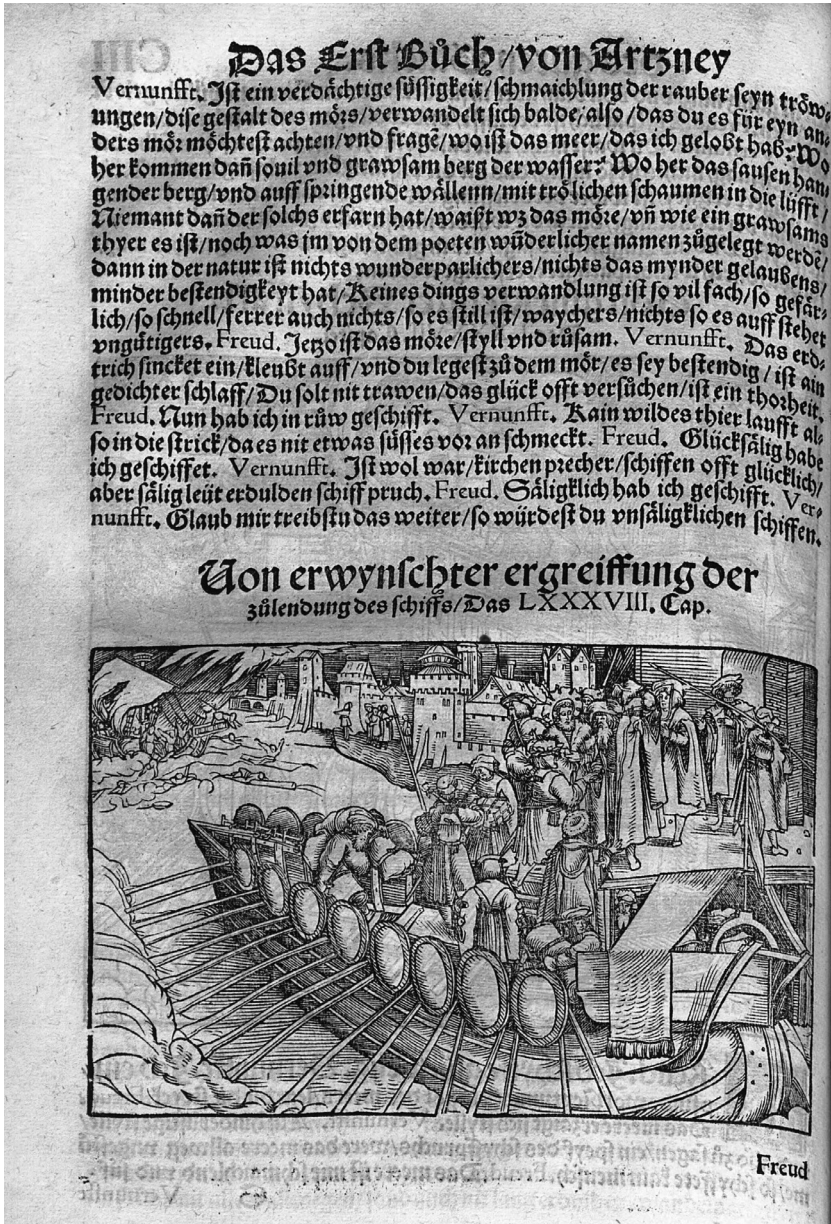 Das Erst Bůch/von Artzney
Vernunfft. Ist ein verdächtige süssigkeit/schmaichlung der rauber seyn tröw-
ungen/dise gestalt des mörs/verwandelt sich balde/also/das du es für eyn an-
ders mör möchtest achten/vnd fragē/wo ist das meer/das ich gelobt hab? Wo
her kommen dañ souil vnd grawsam berg der wasser? Wo her das sausen han-
gender berg/vnd auff springende wällenn/mit trölichen schaumen in die lüfft/
Niemant dañ der solchs erfarn hat/waißt wz das möre/vñ wie ein grawsams
thyer es ist/noch was jm von dem poeten wūderlicher namen zůgelegt werdē/
dann in der natur ist nichts wunderparlichers/nichts das mynder gelaubens/
minder bestendigkeyt hat/Keines dings verwandlung ist so vil fach/so gefär-
lich/so schnell/ferrer auch nichts/so es still ist/waychers/nichts so es auff stehet
vngütigers. Freud. Jetzo ist das möre/styll vnd růsam. Vernunfft. Das erd-
trich sincket ein/kleubt auff/vnd du legest zů dem mör/es sey bestendig/ist ain
gedichter schlaff/Du solt nit trawen/das glück offt versůchen/ist ein thorheit.
Freud. Nun hab ich in růw geschifft. Vernunfft. Kain wildes thier laufft al-
so in die strick/da es nit etwas süsses vor an schmeckt. Freud. Glücksälig habe
ich geschiffet. Vernunfft. Ist wol war/kirchen precher/schiffen offt glücklich/
aber sälig leüt erdulden schiffpruch. Freud. Säligklich hab ich geschifft. Ver-
nunfft. Glaub mir treibstu das weiter/so würdest du vnsäligklichen schiffen.
Von erwynschter ergreiffung der
zůlendung des schiffs/Das LXXXVIII. Cap.
Freud